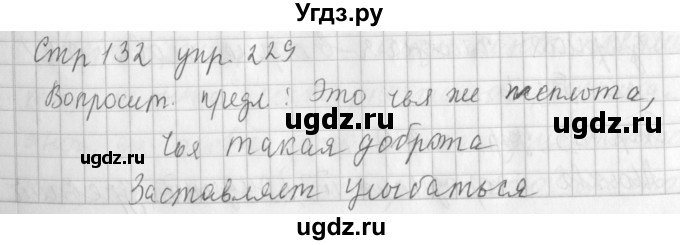 Угдз.ру
Стр 132 упр. 229
Вопросит. предл: Это чья же теплота,
ugdz.ru ugdz.ru
Чья такая доброта
ugdz.ru ugdz.ru
Заставляет улыбаться
ugdz.ru